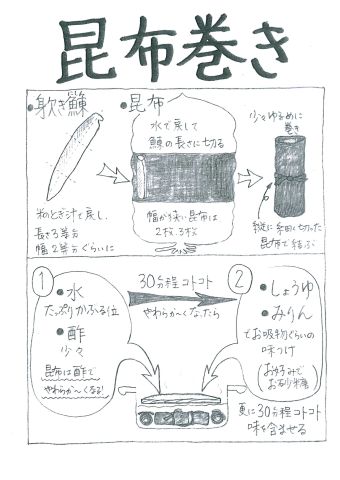 昆布巻き
・身欠き鰊
・昆布
水で戻して
鰊の長さに切る
少々ゆるめに
巻き
米のとぎ汁で戻し、
長さ3等分
幅2等分ぐらいに
幅が狭い昆布は
2枚、3枚
縦に細く切った
昆布で結ぶ
①
・水
たっぷりかぶる位
・酢
少々
昆布は酢で
やわらか〜くなる!
30分程コトコト
やわらか〜くなったら
②
・しょうゆ
・みりん
でお吸物ぐらいの
味つけ
(お好みで
お砂糖)
更に30分程コトコト
味を含ませる